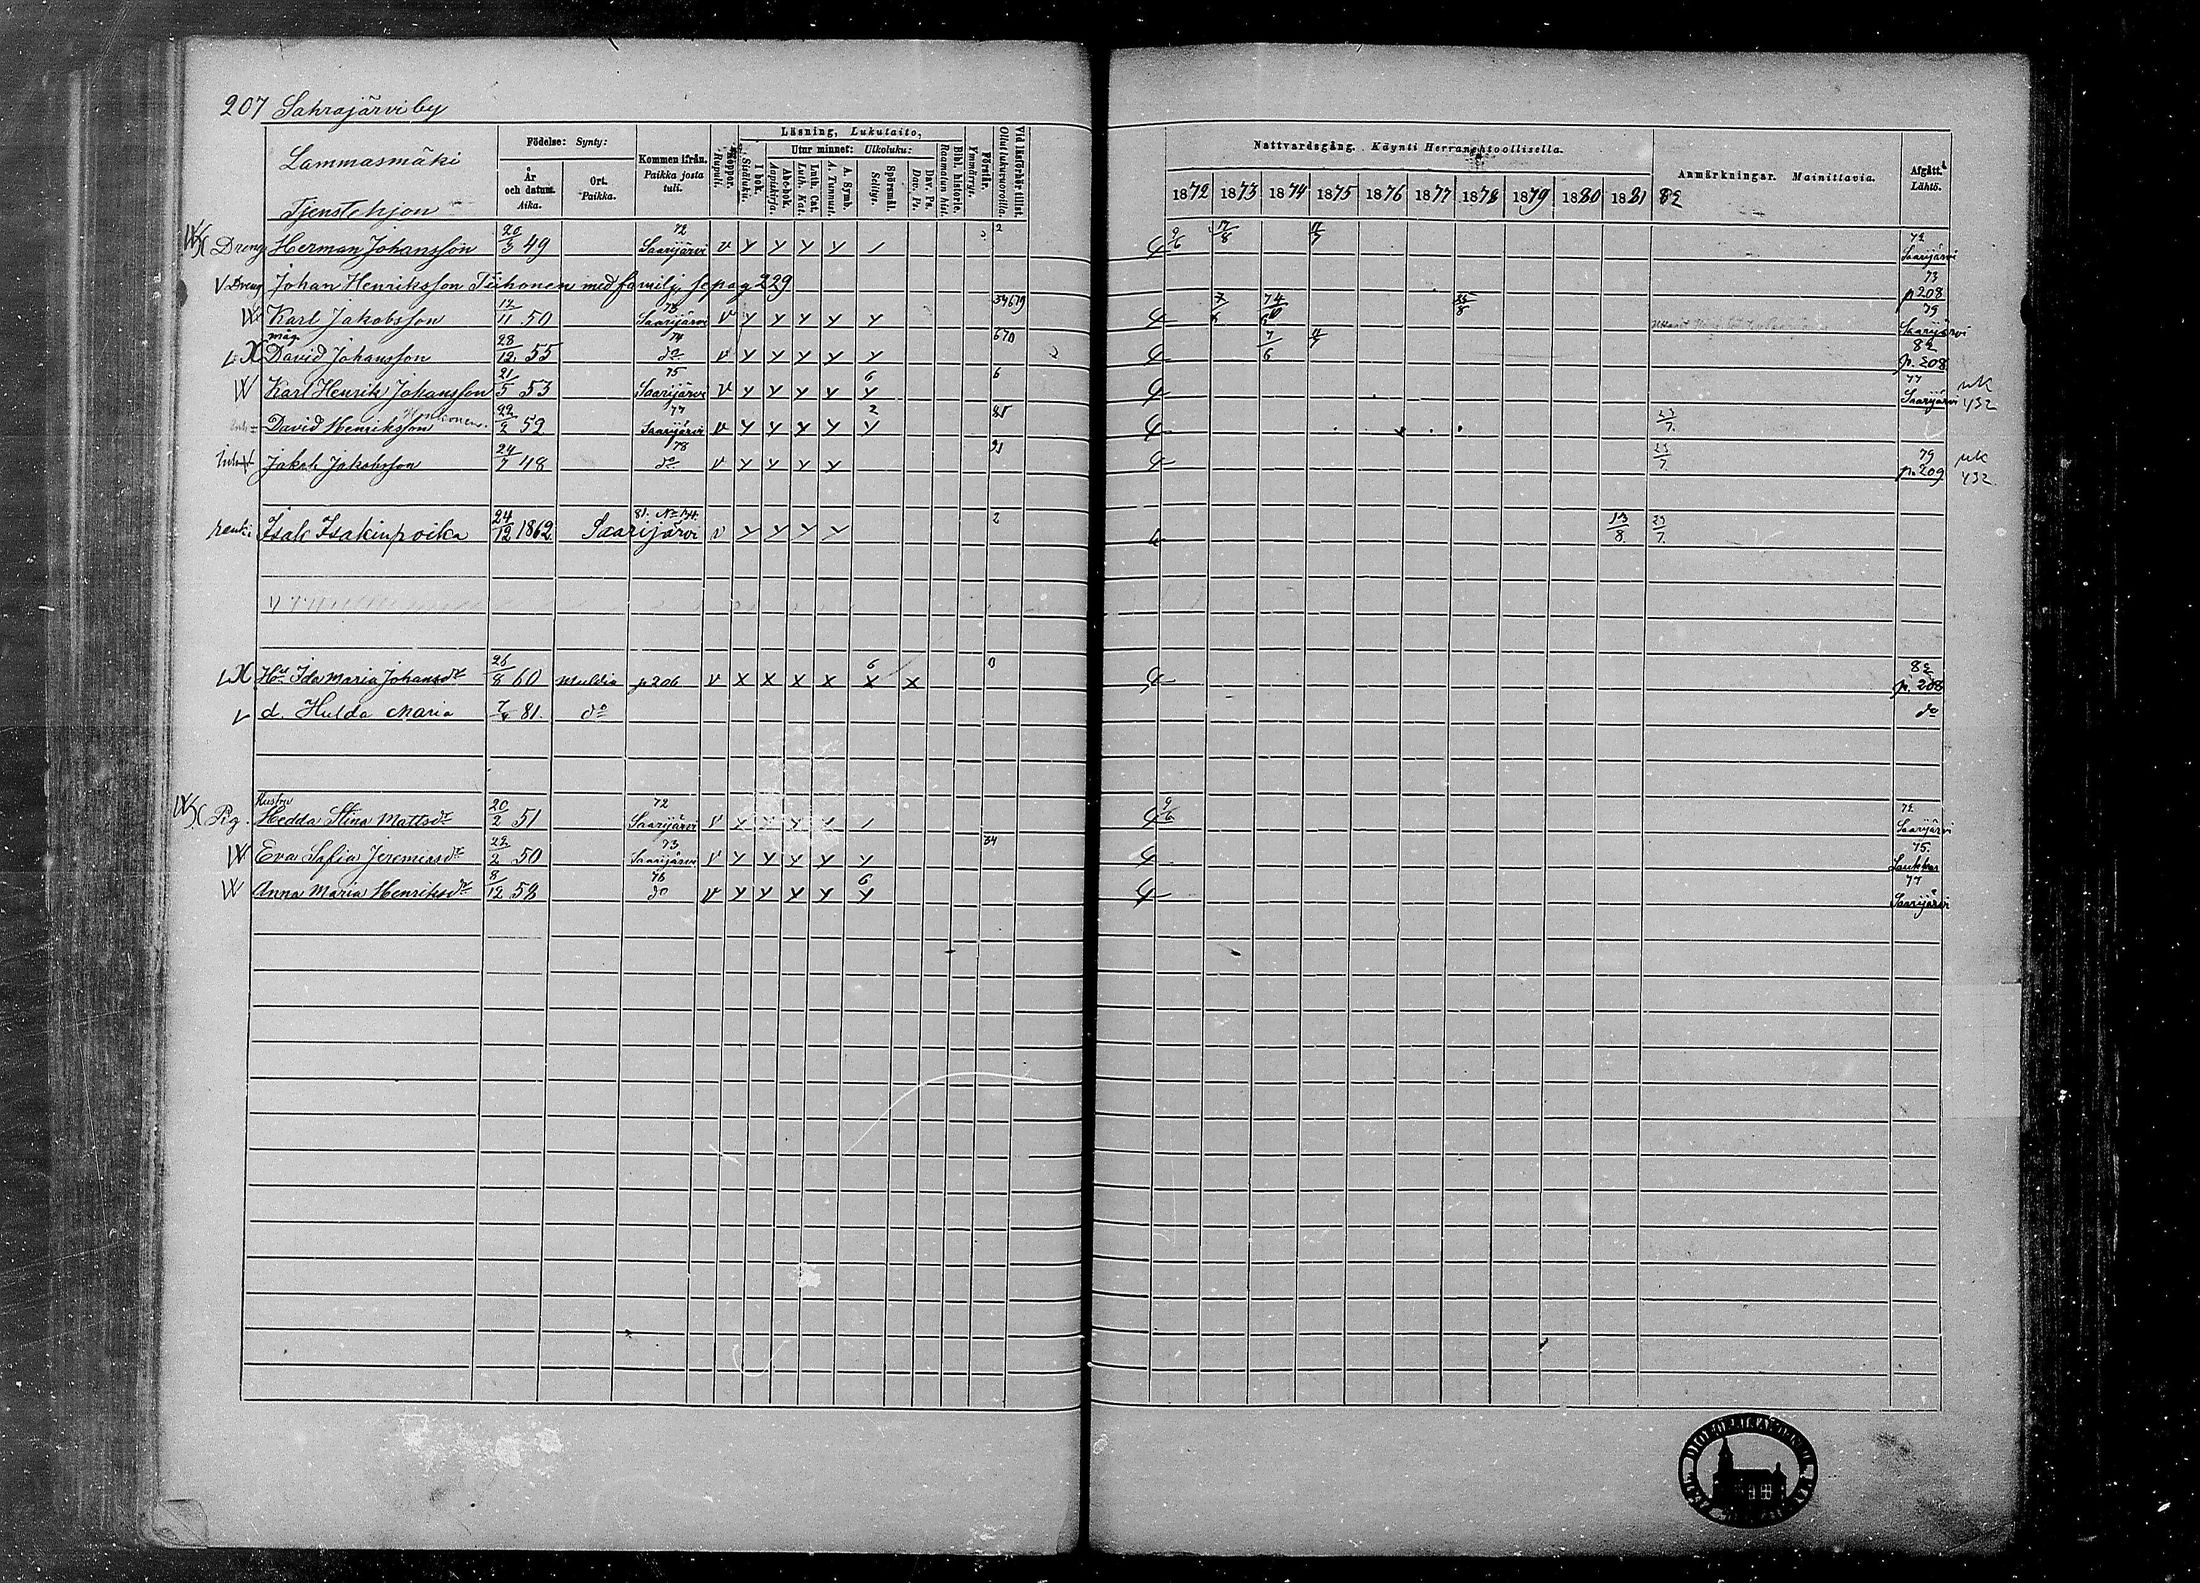 207 Sahrajärvi by
Lammasmäki
Tjenstehjon
Födelse: Synty:
År och datum. Aika.
Ort. Paikka.
Kommen ifrån. Paikka josta tuli.
Koppor. Rupuli.
Läsning, Lukutaito,
I bok. Sisäluku.
Utur minnet: Ulkoluku:
Abc-bok. Aapiskirja.
Luth. Cat. Luth. Kat.
A. Symb. A. Tunnust.
Spörsmål. Selitys.
Dav. Ps. Dav. Ps.
Bibl. historie. Raamatun hist.
Förstår. Ymmärrys.
Vid läsförhör tillst. Ollut lukuvuorolla.
Nattvardsgång. Käynti Herran ehtoollisella.
1872 1873 1874 1875 1876 1877 1878 1879 1880 1881 82
Anmärkningar. Mainittavia.
Afgått. Lähtö.
Dreng Herman Johansson 20/3 49 72 Saarijärvi v y y y y 2 9/6 17/8 72 Saarijärvi
Dreng Johan Henriksson Tiihonen med familj, se pag 229 73 p 208
Karl Jakobsson 50 73 Saarijärvi v y y y y y 34679 79 Saarijärvi
måg David Johansson 28/12 55 74 do v y y y y y 670 7/6 82 p. 208
Karl Henrik Johansson 21/5 53 75 Saarijärvi v y y y y 6 y 6 77 Saarijärvi uk 432
David Henriksson 22/2 52 77 Saarijärvi v y y y y 2 y 81 23/7
Jakob Jakobsson 24/7 48 78 do v y y y y 91 23/7 79 p. 209 uk 432
renki Isak Isakinpoika 24/12 1862 Saarijärvi 81. No 174. v y y y y 2 13/8 23/7
Hu Ida Maria Johansdr 26/8 60 Multia p 206 v x x x x 6 x x 0 82 p. 208
d. Hulda Maria 81. do do
Hustru
Pig. Hedda Stina Mattsdr 20/2 51 72 Saarijärvi v y y y y 9/6 72 Saarijärvi
Eva Sofia Jeremiasdr 50 73 Saarijärvi v y y y y y 34 75. Laukkas
Anna Maria Henriksdr 8/12 58 76 do v y y y y 6 y 77 Saarijärvi